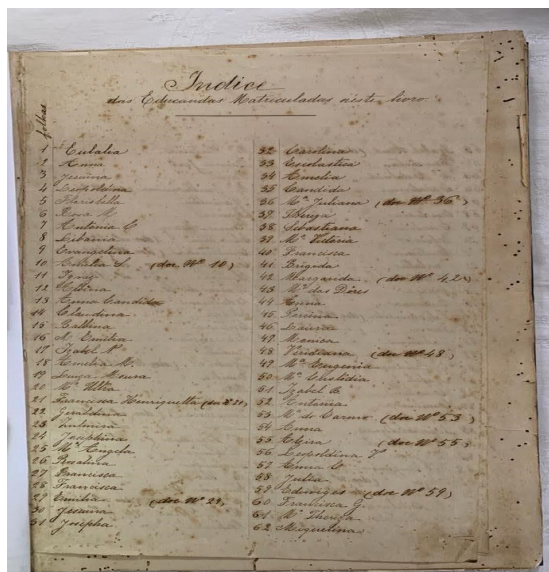 Indice
das Educandas Matriculadas neste livro
folhas
1 Eulalia
2 Anna
3 Jesuina
4 Leopoldina
5 Florisbella
6 Rosa M.
7 Antonia C.
8 Libania
9 Evangelina
10 Idalia S. (dor Nº 10)
11 Ignez
12
13 Anna Candida
14 Claudina
15
16 A. Emilia
17 Izabel Mª
18 Amelia M.
19 Luiza Moura
20 Mª
21 Francisca Henriquetta (dor Nº 21)
22 Geraldina
23
24 Josephina
25 Mª Angela
26 Rosalina
27 Francisca
28 Francisca
29 Emilia (dor Nº 29)
30 Jesuina
31 Josepha
32 Carolina
33 Escolastica
34 Amelia
35 Candida
36 Mª Juliana (dor Nº 36)
37
38 Sebastiana
39 Mª Victoria
40 Francisca
41 Brigida
42 Margarida (dor Nº 42)
43 Mª das Dôres
44 Anna
45
46 Laura
47 Monica
48 Viridiana (dor Nº 48)
49 Mª Eugenia
50 Mª Custodia
51 Izabel
52 Antonia
53 Mª do Carmo (dor Nº 53)
54 Anna
55 (dor Nº 55)
56 Leopoldina
57 Anna
58 Julia
59 Edwiges (dor Nº 59)
60 Francisca G.
61 Mª Thereza
62 Miquelina